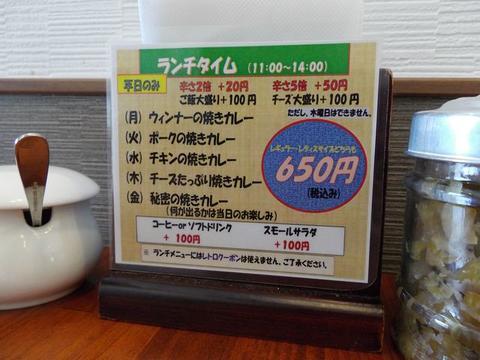 ランチタイム (11:00~14:00)
平日のみ 辛さ2倍 +20円 辛さ5倍 +50円
ご飯大盛り+100円 チーズ大盛り+100円
ただし、木曜日はできません。
(月) ウィンナーの焼きカレー
(火) ポークの焼きカレー
(水) チキンの焼きカレー
(木) チーズたっぷり焼きカレー
(金) 秘密の焼きカレー
(何が出るかは当日のお楽しみ)
レギュラー・レディスサイズどちらも
650円
(税込み)
コーヒーor ソフトドリンク
+ 100円
スモールサラダ
+100円
※ ランチメニューにはレトロクーポンは使えません、ご了承ください。